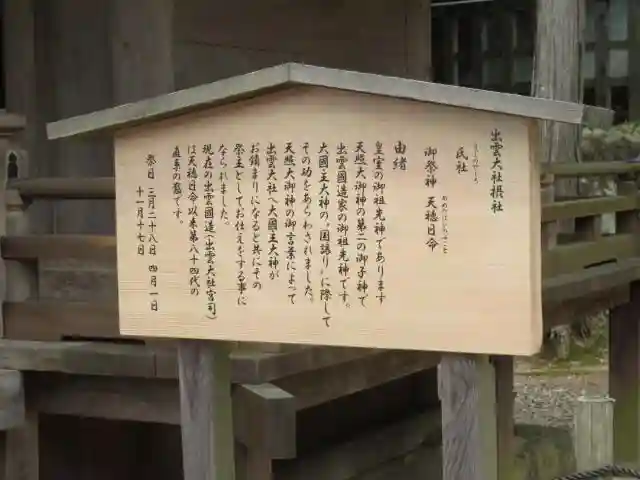 出雲大社摂社
民社
御祭神 天穂日命
あめのほひのみこと
由緒
皇室の御祖先神であります
天照大御神の第二の御子神で
出雲國造家の御祖先神です。
大國主大神の、“国譲り”に際して
その功をあらわされました。
天照大御神の御言葉によって
出雲大社へ大國主大神が
お鎮まりになると共にその
祭主としてお仕えをする事に
なられました。
現在の出雲國造(出雲大社宮司)
は天穂日命以来第八十四代の
直系の裔です。
祭日 三月二十八日 四月一日
十一月十七日